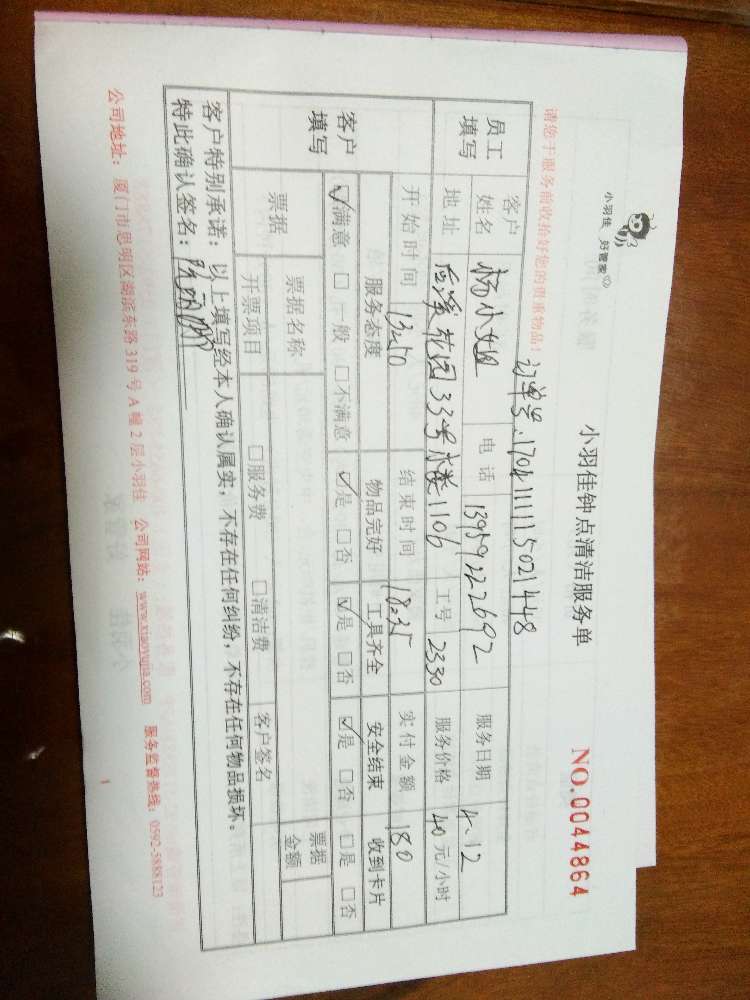 小羽佳 好管家
小羽佳钟点清洁服务单
NO.0044864
订单号:1704111115021448
请您于服务前收拾好您的贵重物品!
员工填写 客户姓名 杨小姐 电话 13959222692 服务日期 4.12
地址 后溪花园33号楼1106 工号 2330 服务价格 40元/小时
客户填写 开始时间 13:50 结束时间 18:35 实付金额 180
服务态度 物品完好 工具齐全 安全结束 收到卡片
☑满意 □一般 □不满意 ☑是 □否 ☑是 □否 ☑是 □否 □是 □否
票据 票据名称 票据金额
开票项目 □服务费 □清洁费 客户签名
客户特别承诺:以上填写经本人确认属实,不存在任何纠纷,不存在任何物品损坏。
特此确认签名:
公司地址:厦门市思明区湖滨东路319号A幢2层小羽佳 公司网站:www.xiaoyujia.com 服务监督热线:0592-5888123
1